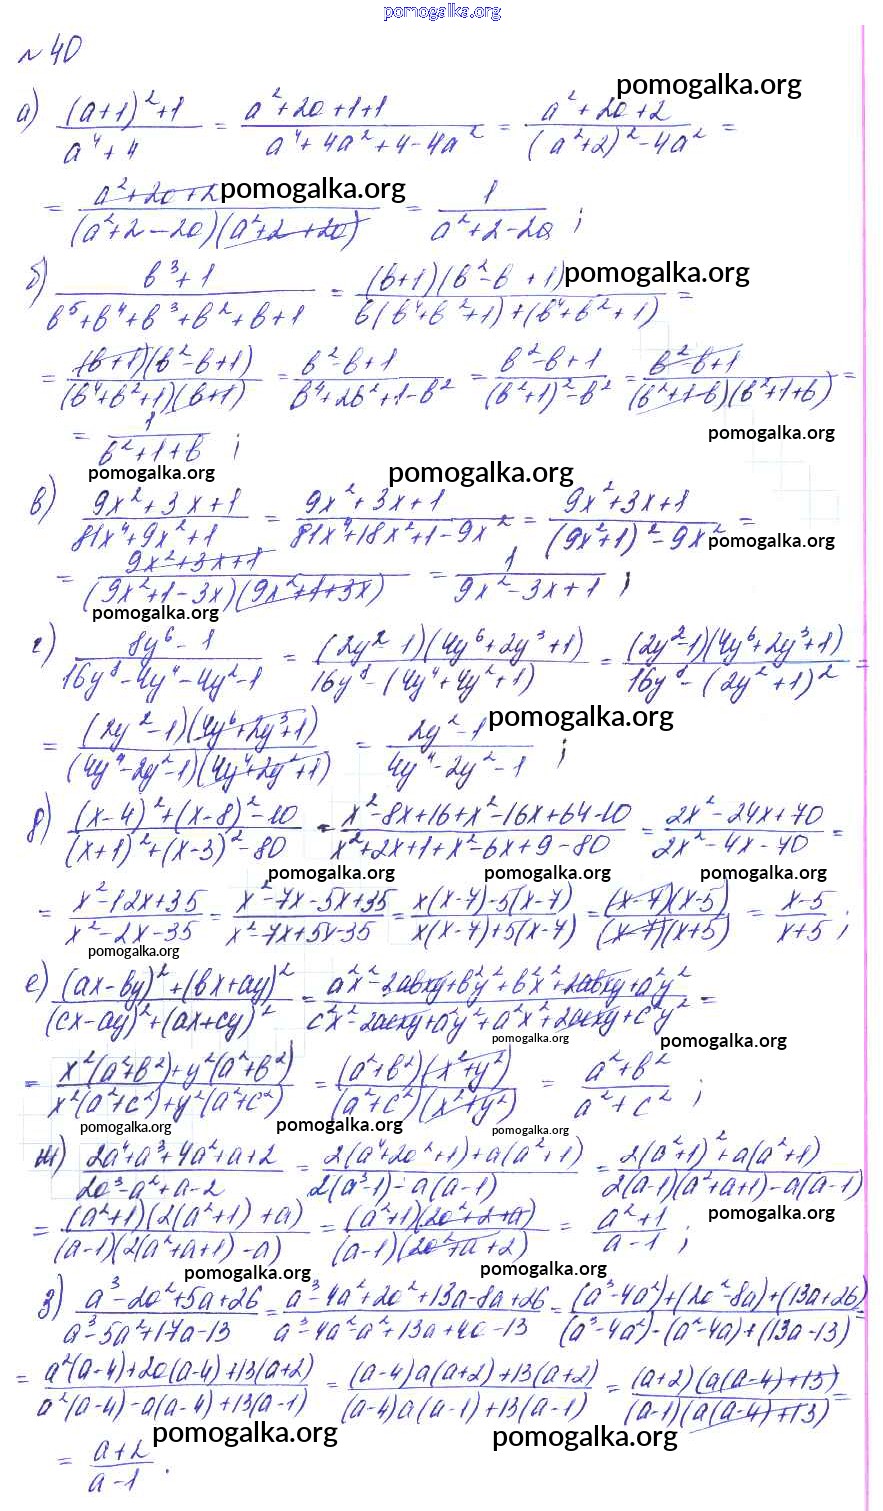 pomogalka.org
№ 40
а) ((a+1)²+1)/(a⁴+4) = (a²+2a+1+1)/(a⁴+4a²+4-4a²) = (a²+2a+2)/((a²+2)²-4a²) = pomogalka.org
= (a²+2a+2)/((a²+2-2a)(a²+2+2a)) = 1/(a²+2-2a) ; pomogalka.org
б) (b³+1)/(b⁵+b⁴+b³+b²+b+1) = ((b+1)(b²-b+1))/(b(b⁴+b²+1)+(b⁴+b²+1)) = pomogalka.org
= ((b+1)(b²-b+1))/((b⁴+b²+1)(b+1)) = (b²-b+1)/(b⁴+2b²+1-b²) = (b²-b+1)/((b²+1)²-b²) = (b²-b+1)/((b²+1-b)(b²+1+b)) =
= 1/(b²+1+b) ; pomogalka.org
pomogalka.org pomogalka.org
в) (9x²+3x+1)/(81x⁴+9x²+1) = (9x²+3x+1)/(81x⁴+18x²+1-9x²) = (9x²+3x+1)/((9x²+1)²-9x²) = pomogalka.org
= (9x²+3x+1)/((9x²+1-3x)(9x²+1+3x)) = 1/(9x²-3x+1) ;
pomogalka.org
г) (8y⁶-1)/(16y⁸-4y⁴-4y²-1) = ((2y²-1)(4y⁶+2y³+1))/(16y⁸-(4y⁴+4y²+1)) = ((2y²-1)(4y⁶+2y³+1))/(16y⁸-(2y²+1)²) =
= ((2y²-1)(4y⁶+2y³+1))/((4y⁴-2y²-1)(4y⁴+2y²+1)) = (2y²-1)/(4y⁴-2y²-1) ; pomogalka.org
д) ((x-4)²+(x-8)²-10)/((x+1)²+(x-3)²-80) = (x²-8x+16+x²-16x+64-10)/(x²+2x+1+x²-6x+9-80) = (2x²-24x+70)/(2x²-4x-70) =
pomogalka.org pomogalka.org pomogalka.org
= (x²-12x+35)/(x²-2x-35) = (x²-7x-5x+35)/(x²-7x+5x-35) = (x(x-7)-5(x-7))/(x(x-7)+5(x-7)) = ((x-7)(x-5))/((x-7)(x+5)) = (x-5)/(x+5) ;
pomogalka.org
е) ((ax-by)²+(bx+ay)²)/((cx-ay)²+(ax+cy)²) = (a²x²-2abxy+b²y²+b²x²+2abxy+a²y²)/(c²x²-2acxy+a²y²+a²x²+2acxy+c²y²) =
pomogalka.org pomogalka.org
= (x²(a²+b²)+y²(a²+b²))/(x²(a²+c²)+y²(a²+c²)) = ((a²+b²)(x²+y²))/((a²+c²)(x²+y²)) = (a²+b²)/(a²+c²) ;
pomogalka.org pomogalka.org pomogalka.org
ж) (2a⁴+a³+4a²+a+2)/(2a³-a²+a-2) = (2(a⁴+2a²+1)+a(a²+1))/(2(a³-1)-a(a-1)) = (2(a²+1)²+a(a²+1))/(2(a-1)(a²+a+1)-a(a-1))
= ((a²+1)(2(a²+1)+a))/((a-1)(2(a²+a+1)-a)) = ((a²+1)(2a²+2+a))/((a-1)(2a²+a+2)) = (a²+1)/(a-1) ; pomogalka.org
pomogalka.org pomogalka.org
з) (a³-2a²+5a+26)/(a³-5a²+17a-13) = (a³-4a²+2a²+13a-8a+26)/(a³-4a²-a²+13a+4a-13) = ((a³-4a²)+(2a²-8a)+(13a+26))/((a³-4a²)-(a²-4a)+(13a-13)) =
= (a²(a-4)+2a(a-4)+13(a+2))/(a²(a-4)-a(a-4)+13(a-1)) = ((a-4)a(a+2)+13(a+2))/((a-4)a(a-1)+13(a-1)) = ((a+2)(a(a-4)+13))/((a-1)(a(a-4)+13)) =
pomogalka.org pomogalka.org
= (a+2)/(a-1) .